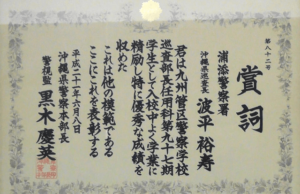 第八十二号
賞詞
浦添警察署
沖縄県巡査長 波平裕寿
君は九州管区警察学校
巡査部長任用科第九十七期
学生として入校中よく学業に
精励し特に優秀な成績を
収めた
これは他の模範である
ここにこれを表彰する
平成二十一年六月八日
沖縄県警察本部長
警視監 黒木慶英